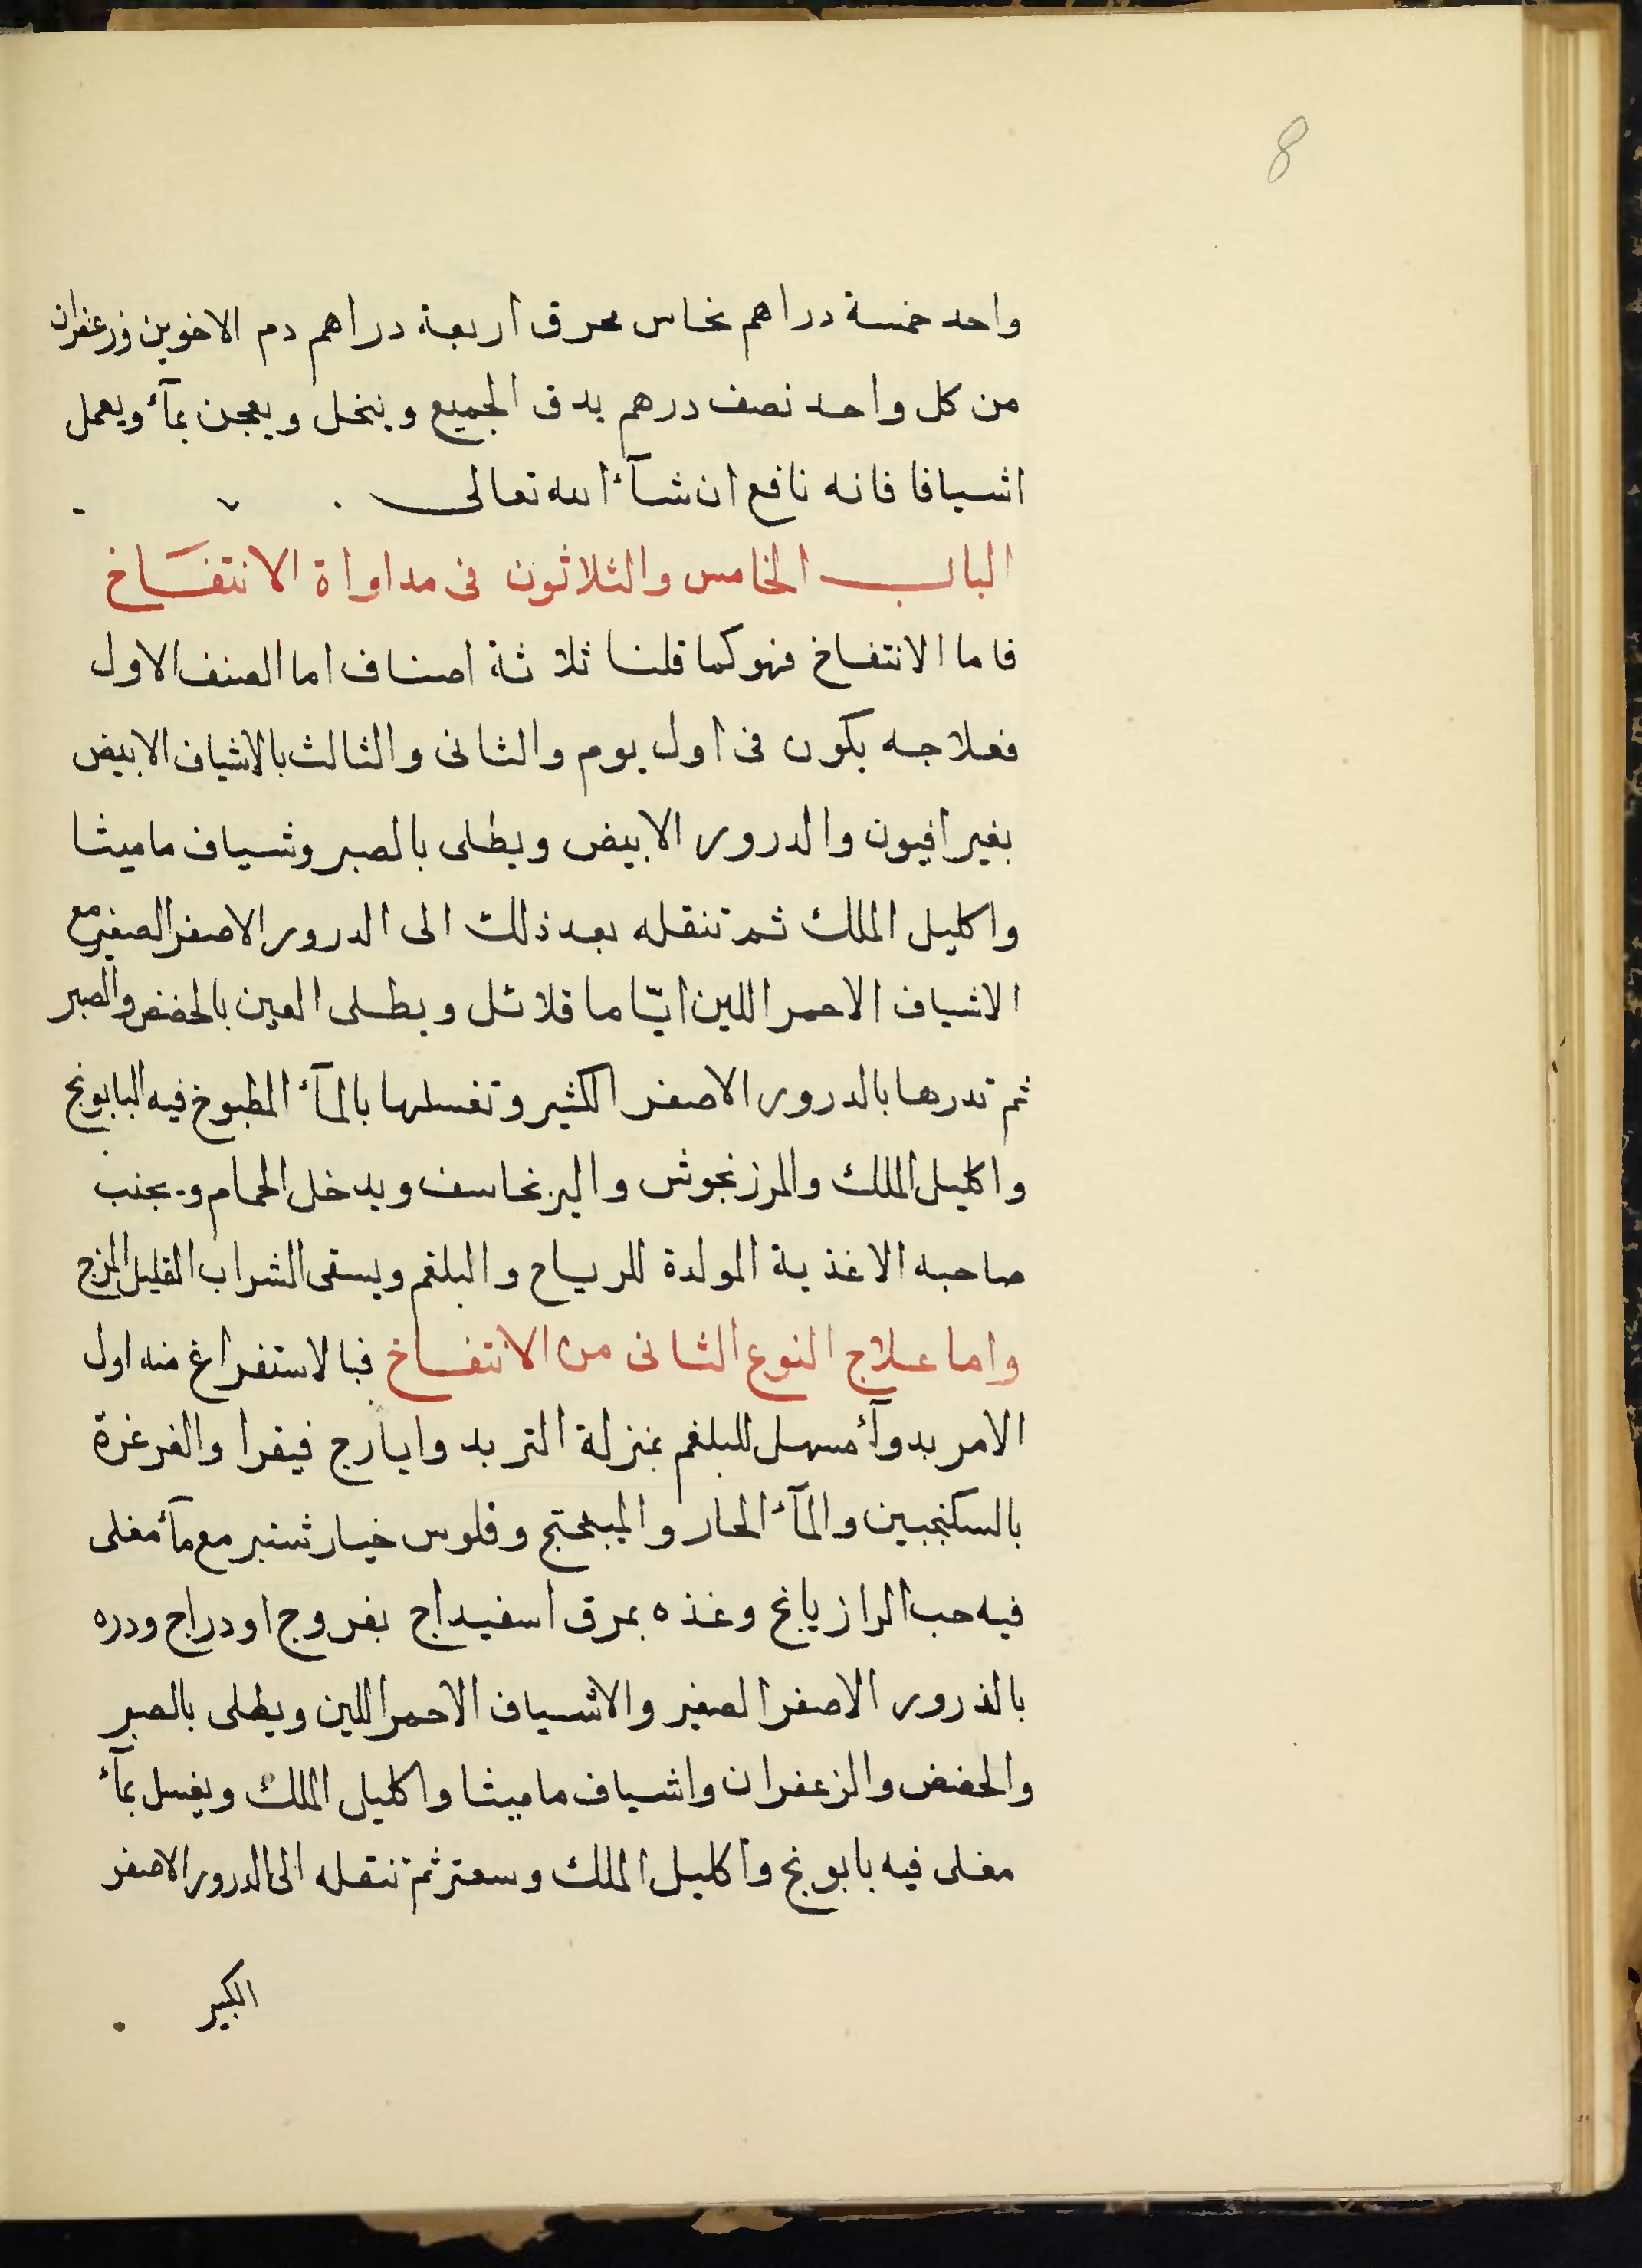 8
واحد خمسة دراهم نحاس محرق اربعة دراهم دم الاخوين وزعفران
من كل واحد نصف درهم يدق الجميع وينخل ويعجن بمآء ويعمل
اشيافا فانه نافع ان شآء الله تعالى
الباب الخامس والثلاثون فى مداواة الانتفاخ
فاما الانتفاخ فهو كما قلنا ثلاثة اصناف اما الصنف الاول
فعلاجه يكون فى اول يوم والثانى والثالث بالاشياف الابيض
بغير افيون والدرور الابيض ويطلى بالصبر وشياف ماميثا
واكليل الملك ثم تنقله بعد ذلك الى الدرور الاصفر الصغير مع
الاشياف الاحمر اللين ايّاما قلائل ويطلى العين بالحضض والصبر
ثم تدرها بالدرور الاصفر الكثير وتغسلها بالمآء المطبوخ فيه البابونج
واكليل الملك والمرزنجوش والبرنجاسف ويدخل الحمام ويجنب
صاحبه الاغذية المولدة للرياح والبلغم ويسقى الشراب القليل المزج
واما علاج النوع الثانى من الانتفاخ فبالاستفراغ منه اول
الامر بدوآء مسهل للبلغم بمنزلة التربد وايارج فيقرا والغرغرة
بالسكنجبين والمآء الحار والميبختج وفلوس خيارشنبر مع مآء مغلى
فيه حب الرازيانج وغذه بمرق اسفيداج بفروج او دراج ودره
بالذرور الاصفر الصغير والاشياف الاحمر اللين ويطلى بالصبر
والحضض والزعفران واشياف ماميثا واكليل الملك ويغسل بمآء
مغلى فيه بابونج واكليل الملك وسعتر ثم تنقله الى الدرور الاصفر
الكبير